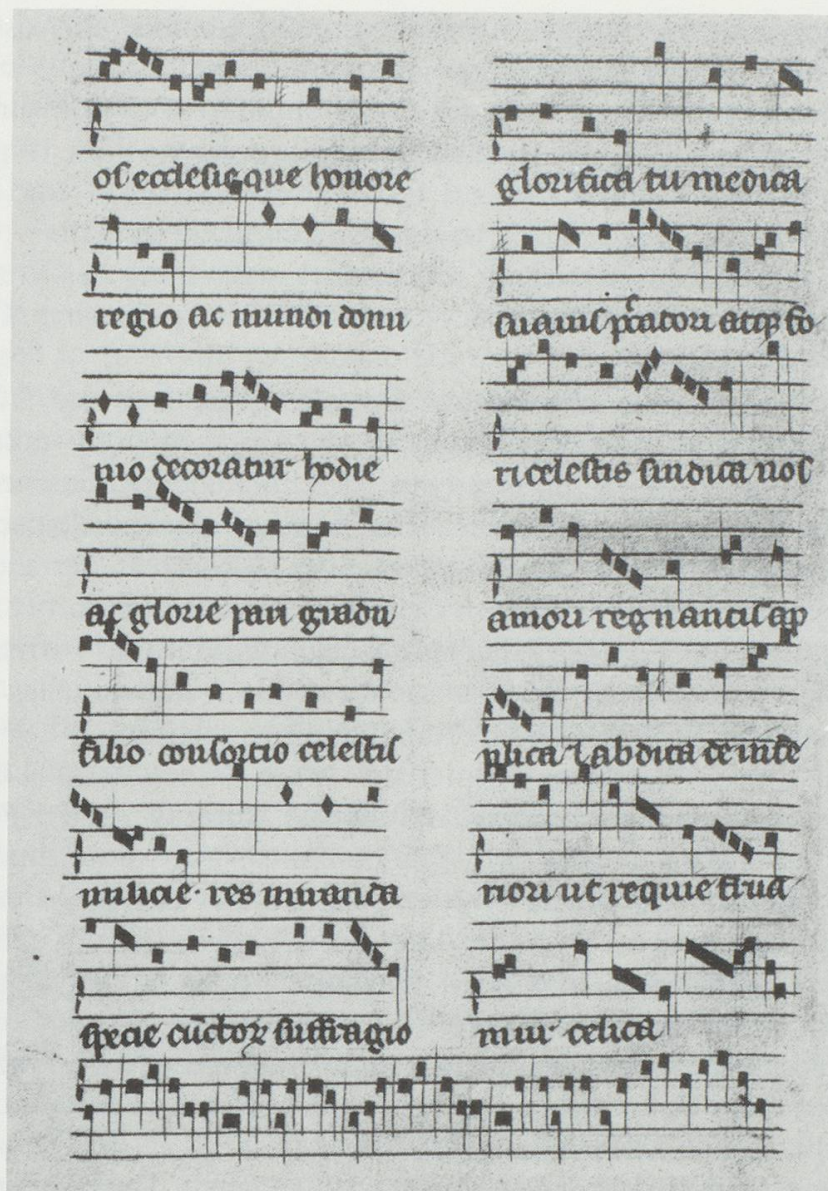 os ecclesie que honore
regio ac mundi donu
mo decoratur hodie
ac glorie pari gradu
filio consortio celestis
milicie· res miranda
specie cu̅ctoꝝ suffragio
glorifica tu medica
suauis pc̅catori atqꝫ fo
ri celestis sindica nos
amori regnantis ap
plica ⁊ abdica de infe
riori ut requie frua
mur celica